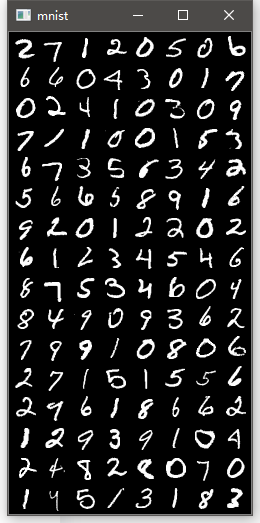 mnist
2 7 1 2 0 5 0 6
6 6 0 4 3 0 1 7
0 2 4 1 0 3 0 9
7 1 1 0 0 1 5 3
6 7 3 5 8 3 4 2
5 6 6 5 8 9 1 6
9 2 0 1 2 2 0 2
6 1 2 3 4 5 4 6
8 7 5 3 4 6 0 4
8 4 9 0 9 3 6 2
7 9 9 1 0 8 0 6
2 7 1 5 1 5 5 6
2 9 6 1 8 6 6 2
1 2 9 3 9 1 0 4
2 4 8 2 8 0 7 0
1 4 5 1 3 1 8 3